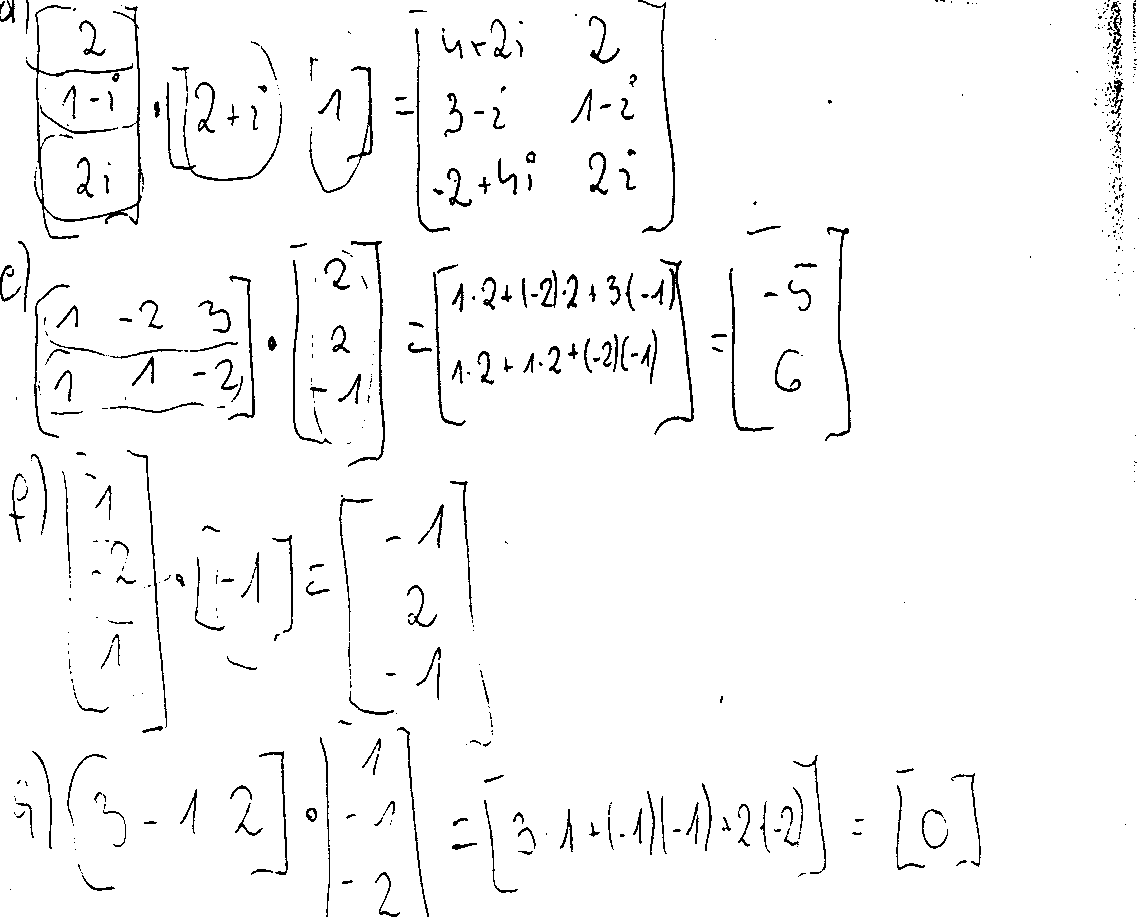 d) [2 1-i 2i] · [2+i 1] = [4+2i 2 3-i 1-i -2+4i 2i]
e) [1 -2 3 1 1 -2] · [2 2 -1] = [1·2+(-2)·2+3(-1) 1·2+1·2+(-2)(-1)] = [-5 6]
f) [1 -2 1] · [-1] = [-1 2 -1]
[3 -1 2] · [1 -1 -2] = [3·1+(-1)(-1)+2(-2)] = [0]